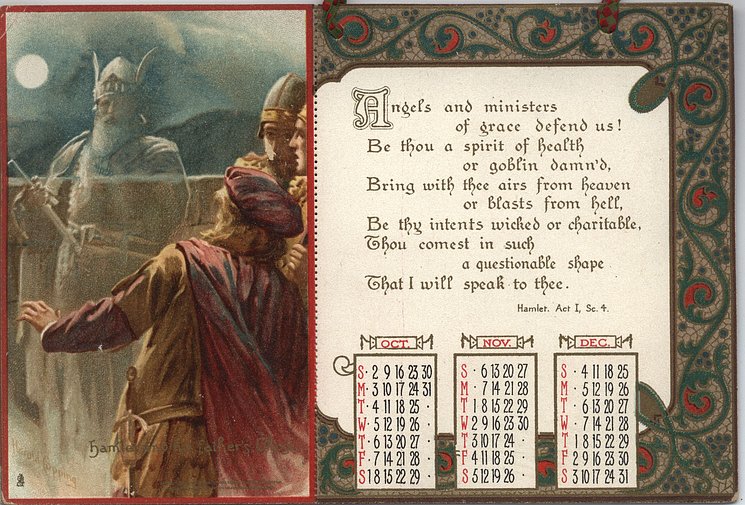 Angels and ministers
of grace defend us!
Be thou a spirit of health
or goblin damn'd,
Bring with thee airs from heaven
or blasts from hell,
Be thy intents wicked or charitable,
Thou comest in such
a questionable shape
That I will speak to thee.
Hamlet. Act I, Sc. 4.
OCT.
S · 2 9 16 23 30
M · 3 10 17 24 31
T · 4 11 18 25 ·
W · 5 12 19 26 ·
T · 6 13 20 27 ·
F · 7 14 21 28 ·
S 1 8 15 22 29 ·
NOV.
S · 6 13 20 27
M · 7 14 21 28
T 1 8 15 22 29
W 2 9 16 23 30
T 3 10 17 24 ·
F 4 11 18 25 ·
S 5 12 19 26 ·
DEC.
S · 4 11 18 25
M · 5 12 19 26
T · 6 13 20 27
W · 7 14 21 28
T 1 8 15 22 29
F 2 9 16 23 30
S 3 10 17 24 31
Hamlet